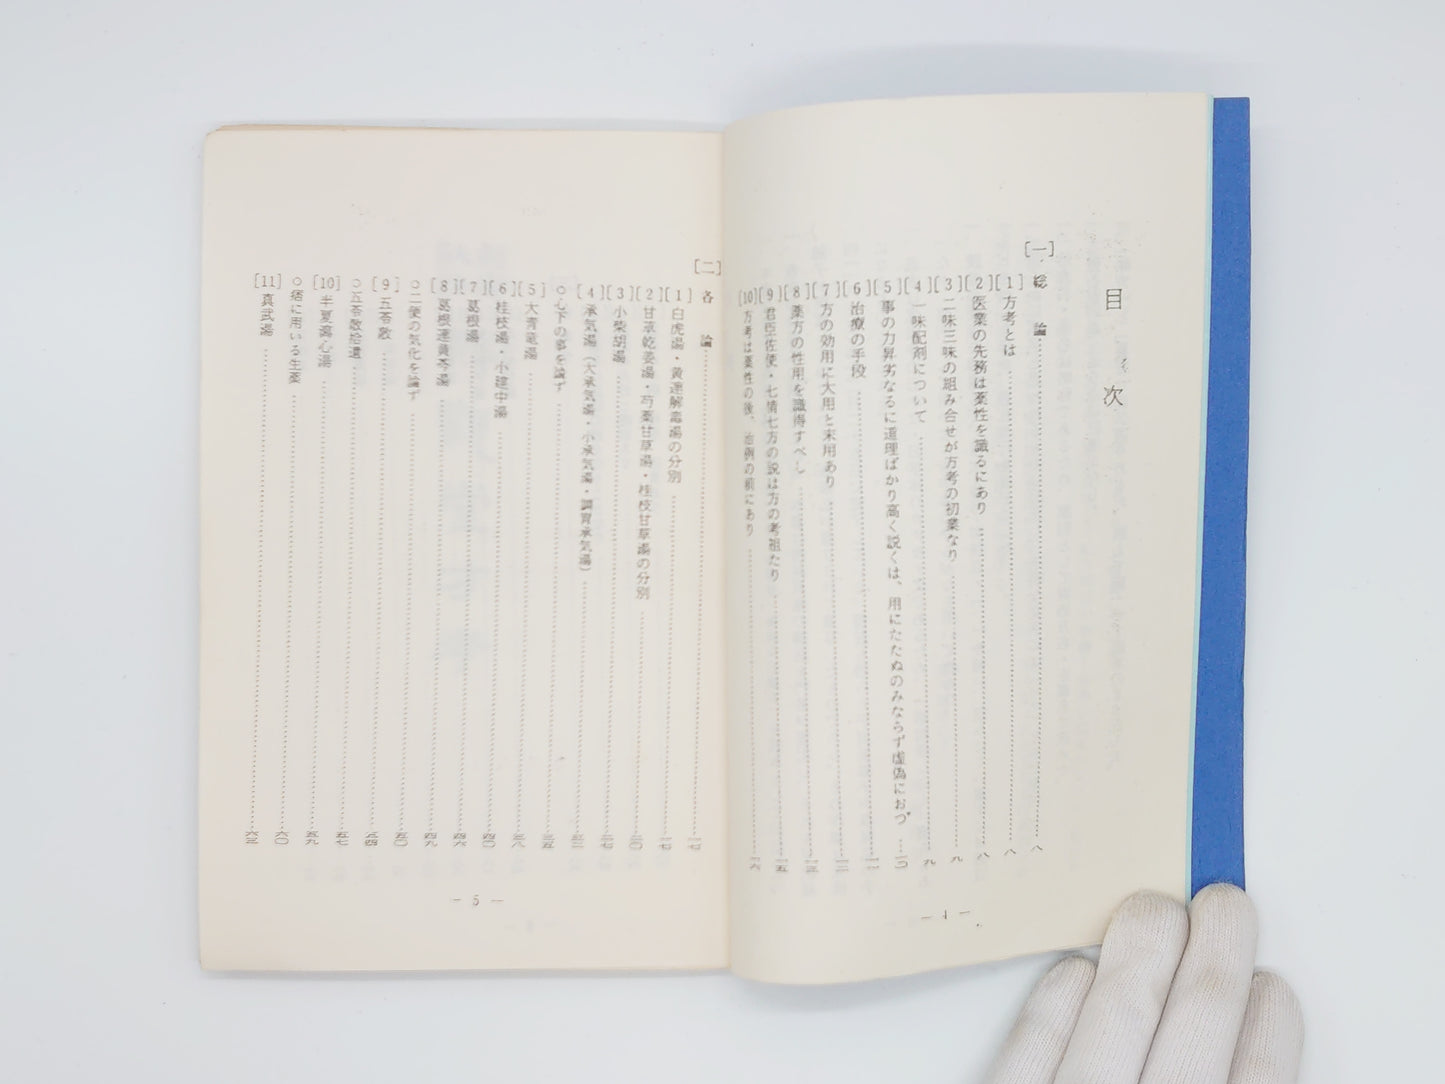 目次
[一] 総論……八
[1] 方考とは……八
[2] 医業の先務は薬性を識るにあり……八
[3] 二味三味の組み合せが方考の初業なり……九
[4] 一味配剤について……九
[5] 事の力昇劣なるに道理ばかり高く説くは、用にたたぬのみならず虚偽におつ……一〇
[6] 治療の手段……一一
[7] 方の効用に大用と末用あり……一二
[8] 薬方の性用を識得すべし……一三
[9] 君臣佐使・七情七方の説は方の考祖たり……一五
[10] 方考は薬性の後、治例の前にあり……一六
— 4 —
[二] 各論……一七
[1] 白虎湯・黄連解毒湯の分別……一七
[2] 甘草乾姜湯・芍薬甘草湯・桂枝甘草湯の分別……二〇
[3] 小柴胡湯……二七
[4] 承気湯（大承気湯・小承気湯・調胃承気湯）……三二
○心下の事を論ず……三五
[5] 大青竜湯……三八
[6] 桂枝湯・小建中湯……四〇
[7] 葛根湯……四六
[8] 葛根連黄芩湯……四九
○二便の気化を論ず……五〇
[9] 五苓散……五四
○五苓散拾遺……五七
[10] 半夏瀉心湯……五九
○痞に用いる生薬……六〇
[11] 真武湯……六三
— 5 —